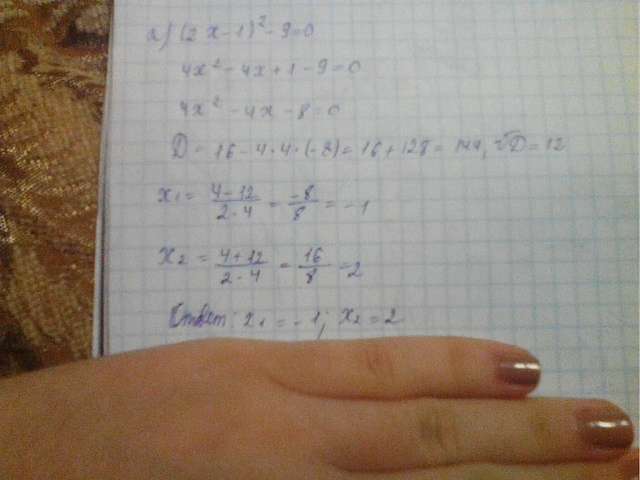 а) (2x-1)² - 9=0
4x² - 4x + 1 - 9 = 0
4x² - 4x - 8 = 0
D = 16 - 4·4·(-8) = 16 + 128 = 144, √D = 12
x₁ = (4-12)/(2·4) = (-8)/8 = -1
x₂ = (4+12)/(2·4) = 16/8 = 2
Ответ: x₁ = -1; x₂ = 2